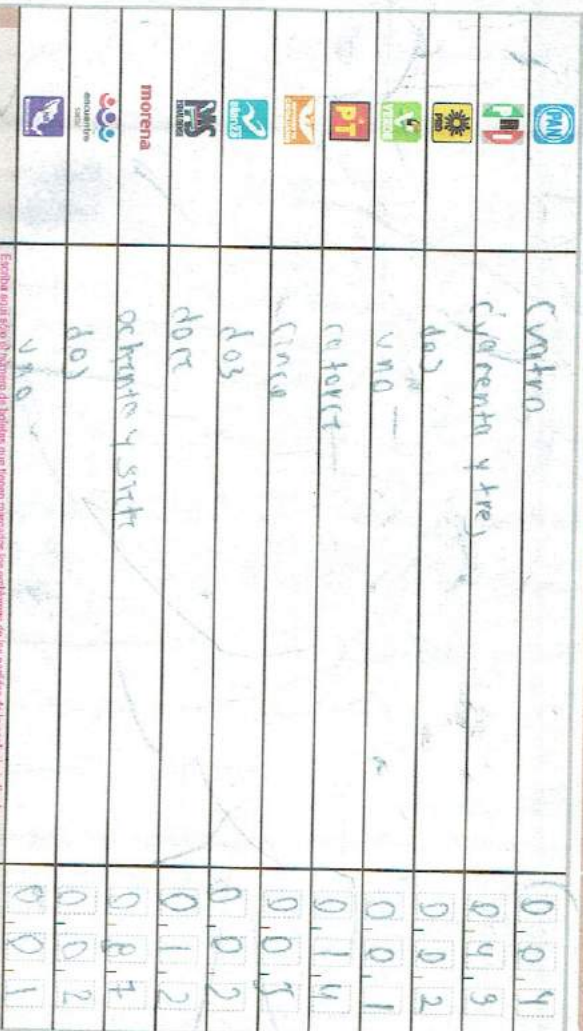 PAN cuatro 0 0 4
PRI cuarenta y tres 0 4 3
PRD dos 0 0 2
VERDE uno 0 0 1
PT catorce 0 1 4
cinco 0 0 5
dos 0 0 2
doce 0 1 2
morena ochenta y siete 0 8 7
encuentro social dos 0 0 2
uno 0 0 1
Escriba aquí sólo el número de boletas que tienen marcados los emblemas de los partidos